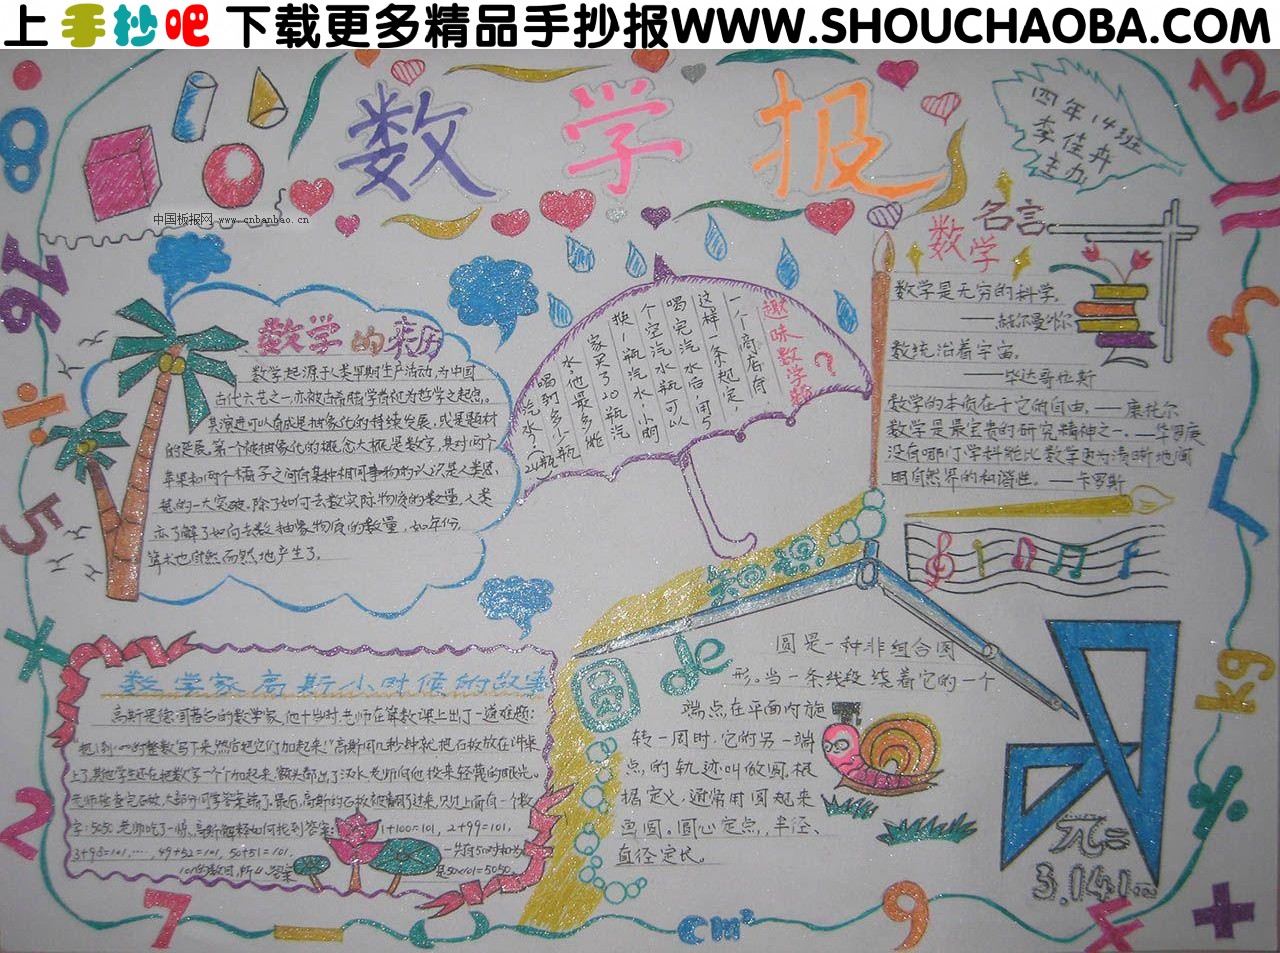 上手抄吧 下载更多精品手抄报WWW.SHOUCHAOBA.COM
数学报
四年14班
李佳冉
主办
中国板报网 www.cnbanbao.cn
8
16
÷
5
×
2
7
12
=
3
√
kg
÷
+
9
cm²
数学的来历
数学起源于人类早期生产活动,为中国
古代六艺之一,亦被古希腊学者视为哲学之起点。
其演进可以看成是抽象化的持续发展,或是题材
的延展,第一个被抽象化的概念大概是数字,其对两个
苹果和两个橘子之间有某种相同事物的认识是人类思
想的一大突破,除了如何去数实际物质的数量,人类
亦了解了如何去数抽象物质的数量,如年份,
算术也自然而然地产生了。
趣味数学题?
一个商店有
这样一条规定,
喝完汽水后,用5
个空汽水瓶可以
换一瓶汽水,小明
家买了20瓶汽
水,他最多能
喝到多少瓶
汽水?
数学名言
数学是无穷的科学。
——赫尔曼外尔
数统治着宇宙。
——毕达哥拉斯
数学的本质在于它的自由.——康托尔
数学是最宝贵的研究精神之一.——华罗庚
没有哪门学科能比数学更为清晰地阐
明自然界的和谐性。——卡罗斯
圆de知识
圆是一种非组合图
形。当一条线段绕着它的一个
端点在平面内旋
转一周时,它的另一端
点的轨迹叫做圆,根
据定义,通常用圆规来
画圆。圆心定点,半径、
直径定长。
π=
数学家高斯小时候的故事
高斯是德国著名的数学家,他十岁时,老师在算数课上出了一道难题:
把1到100的整数写下来,然后把它们加起来!高斯用几秒钟就把石板放在讲桌
上了,其他学生还在把数字一个个加起来,额头都出了汗水,老师向他投来轻蔑的眼光。
老师检查完石板,大部分同学答案错了,最后,高斯的石板被翻了过来,只见上面有一个数
字:5050,老师吃了一惊,高斯解释如何找到答案:1+100=101, 2+99=101,
3+98=101, ……, 49+52=101, 50+51=101,一共有50对和为
101的数目,所以答案是50×101=5050。